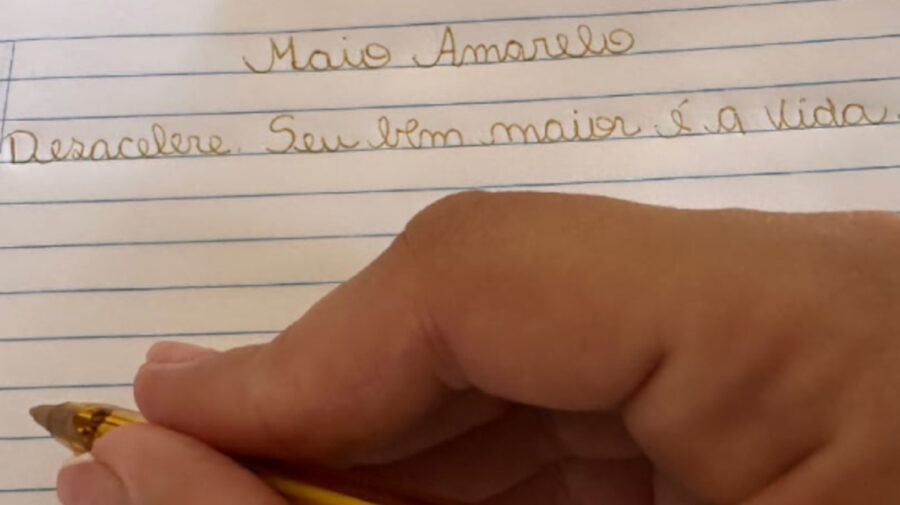 Maio Amarelo
Desacelere. Seu bem maior é a vida.